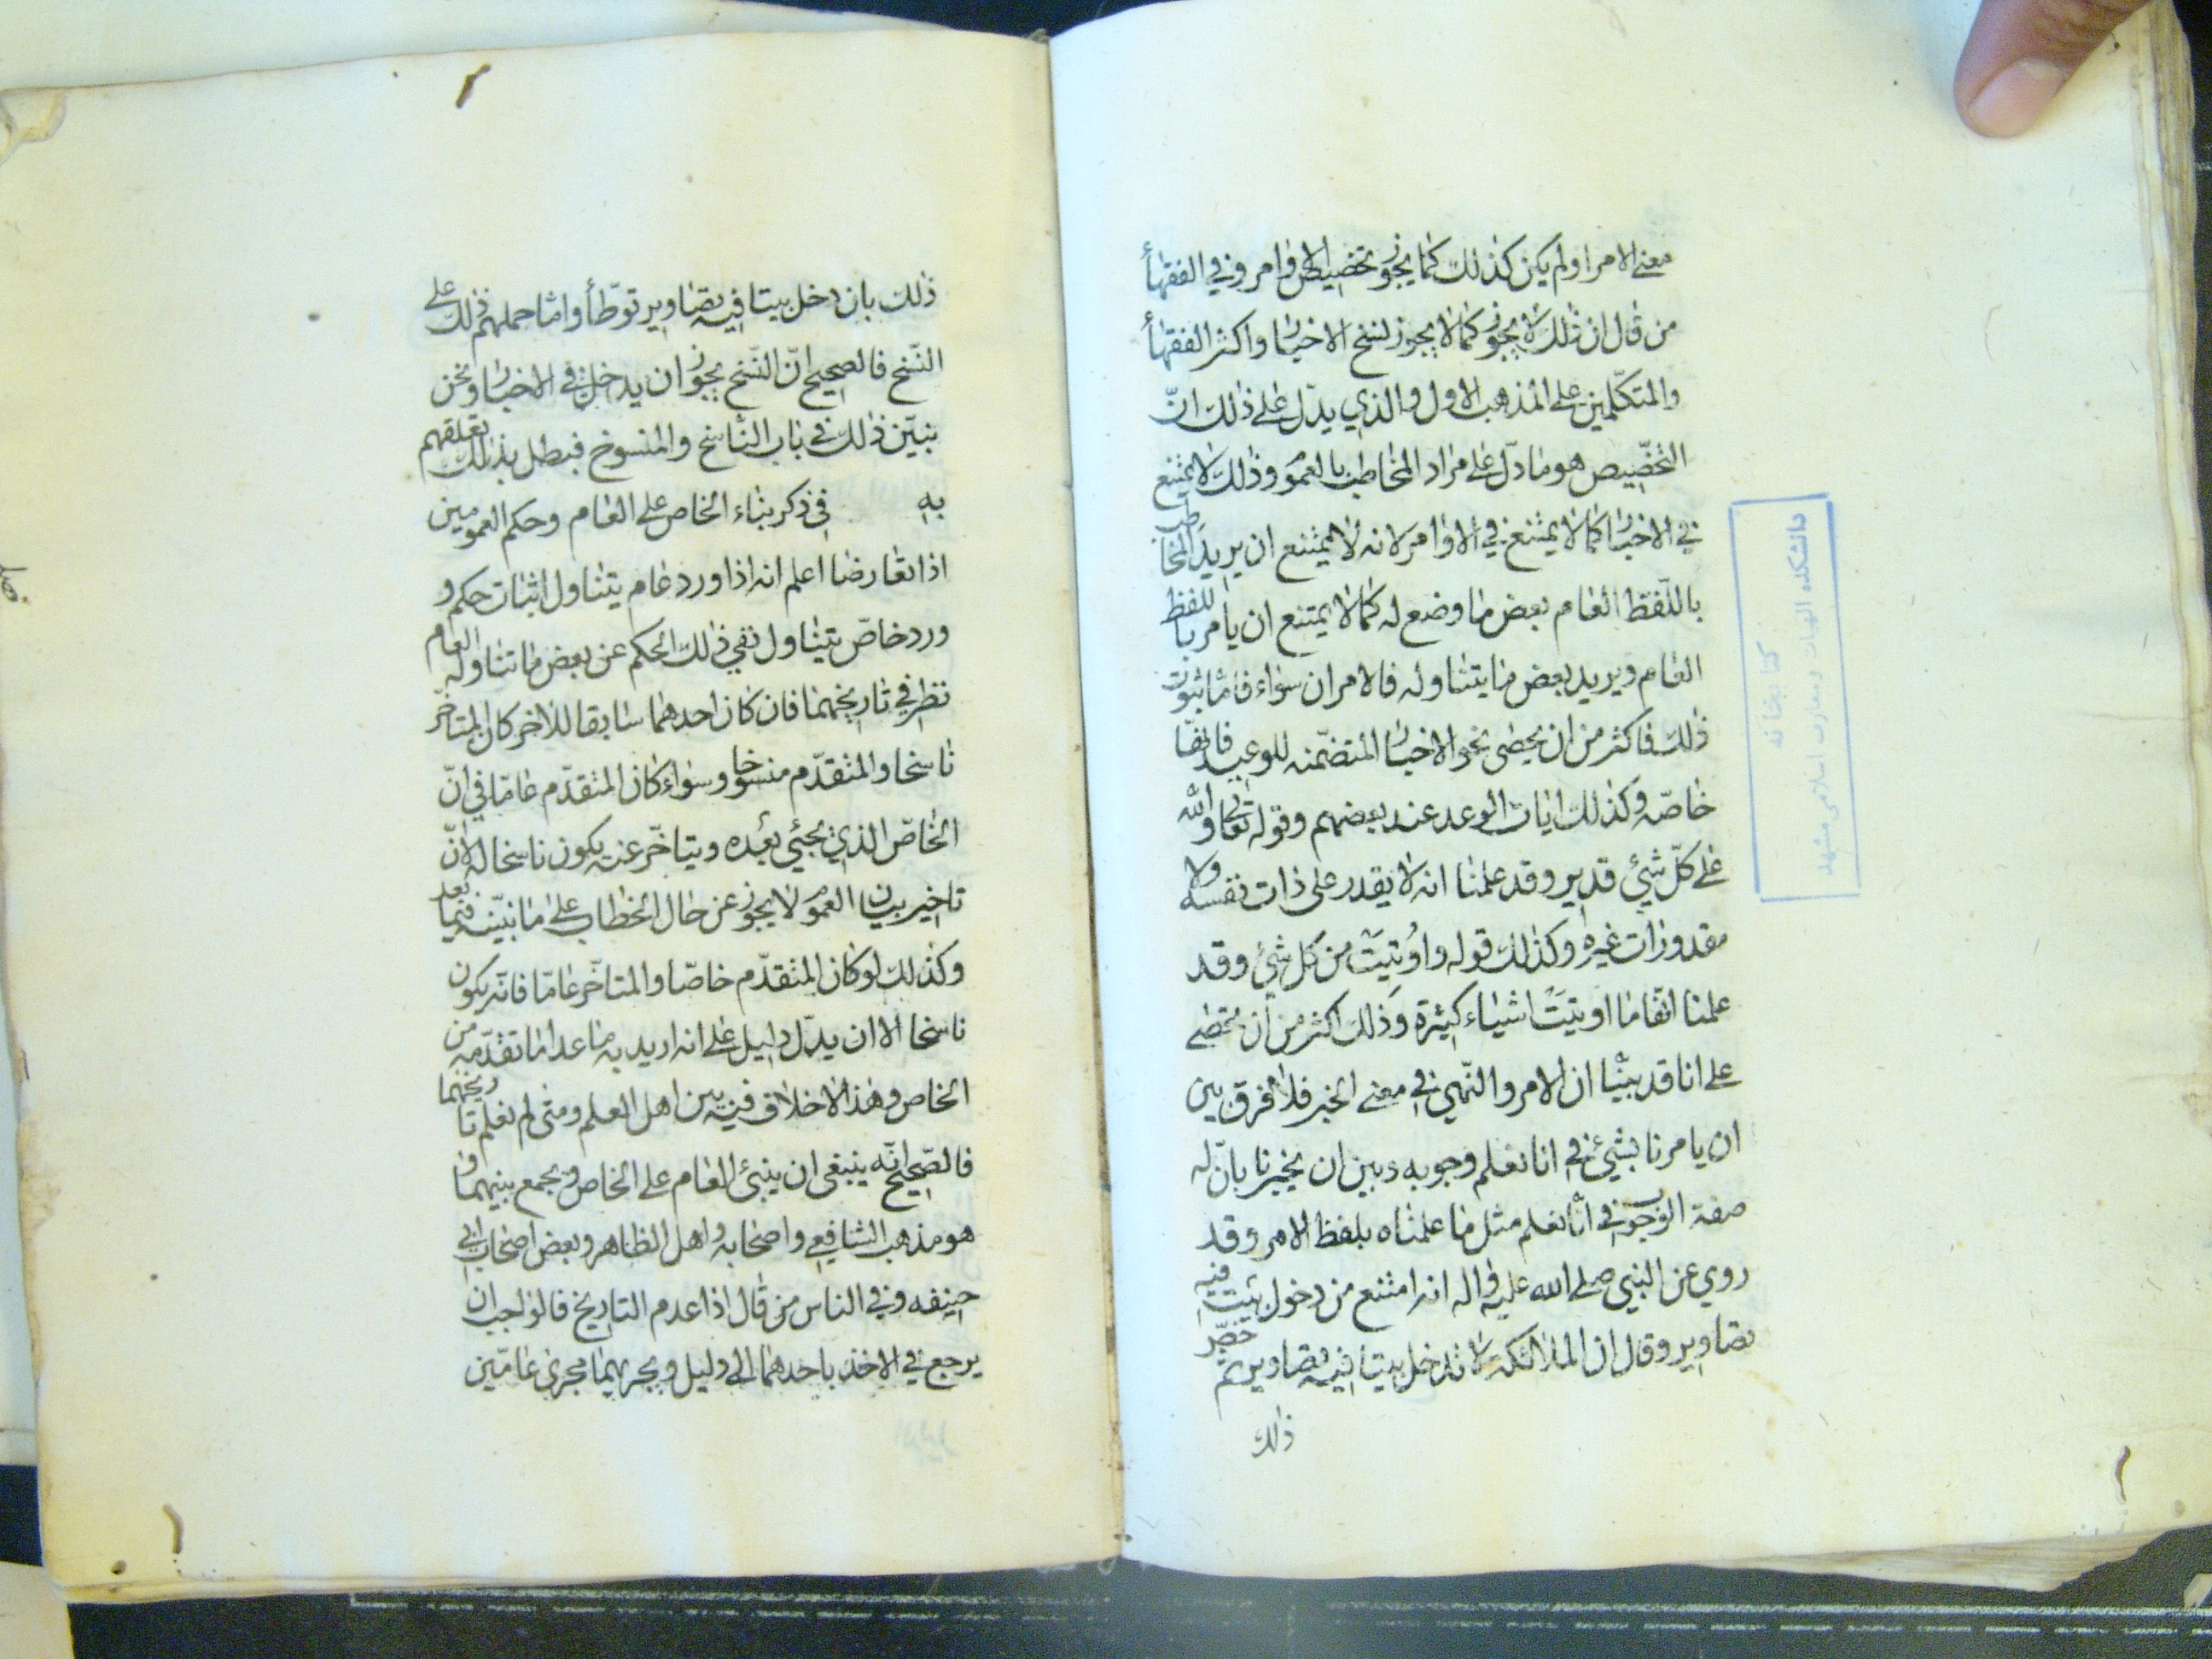 معنى الامر اولم يكن كذلك كما يجوز تخصيص الاوامر وفي الفقهاء
من قال ان ذلك لا يجوز كما لا يجوز نسخ الاخبار واكثر الفقهاء
والمتكلّمين على المذهب الاول والذي يدلّ على ذلك انّ
التخصّيص هو ما دلّ على مراد المخاطب بالعموم وذلك لا يمتنع
في الاخبار كما لا يمتنع في الاوامر لانه لا يمتنع ان يريد المخاطب
باللّفظ العام بعض ما وضع له كما لا يمتنع ان يامر باللفظ
العام ويريد بعض ما يتناوله فالامران سواء فامّا ثبوت
ذلك فاكثر من ان يحصى نحو الاخبار المتضمّنه للوعيد فانّها
خاصّه وكذلك ايات الوعد عند بعضهم وقوله تعالى والله
على كلّ شيئ قدير وقد علمنا انه لا يقدر على ذات نفسه ولا
مقدورات غيره وكذلك قوله واُوتيَت من كل شيئ وقد
علمنا انّها ما اوتيَت اشياء كثيرة وذلك اكثر من ان تحصى
على انا قد بيّنّا ان الامر والنّهي في معنى الخبر فلا فرق بين
ان يامرنا بشيئ في انا نعلم وجوبه وبين ان يخبرنا بانّ له
صفة الوجوب في انّا نعلم مثل ما علمناه بلفظ الامر وقد
روي عن النبي صلى الله عليه واله انه امتنع من دخول بيت فيه
تصاوير وقال ان الملائكة لا تدخل بيتا فيه تصاوير ثم خصّ
ذلك
دانشكده الهيات ومعارف اسلامى مشهد
كتابخانه
ذلك بان دخل بيتا فيه تصاوير توطّأ وامّا حملهم ذلك على
النّسخ فالصحيح انّ النّسخ يجوز ان يدخل في الاخبار ونحن
نبيّن ذلك في باب النّاسخ والمنسوخ فبطل بذلك تعلقهم
به في ذكر بناء الخاص على العام وحكم العمومين
اذا تعارضا اعلم انه اذا ورد عام يتناول اثبات حكم و
ورد خاصّ يتناول نفي ذلك الحكم عن بعض ما تناوله العام
نظر في تاريخهما فان كان احدهما سابقا للاخر كان المتاخّر
ناسخا والمتقدّم منسوخا وسواء كان المتقدّم عامّا في انّ
الخاصّ الذي يجئي بعُده ويتاخّر عنه يكون ناسخا له لانّ
تاخير بيان العموم لا يجوز عن حال الخطاب على ما نبيّنه فيما بعد
وكذلك لو كان المتقدّم خاصّا والمتاخّر عامّا فانّه يكون
ناسخا الا ان يدلّ دليل على انه اريد به ما عدا ما تقدّمه من
الخاص وهذا لا خلاف فيه بين اهل العلم ومتى لم نعلم تاريخهما
فالصّحيح انّه ينبغي ان يبنئ العام على الخاص ويجمع بينهما و
هو مذهب الشافعي واصحابه واهل الظاهر وبعض اصحاب ابي
حنيفه وفي الناس من قال اذا عدم التاريخ فالواجب ان
يرجع في الاخذ باحدهما الى دليل ويجريهما مجرى عامّين